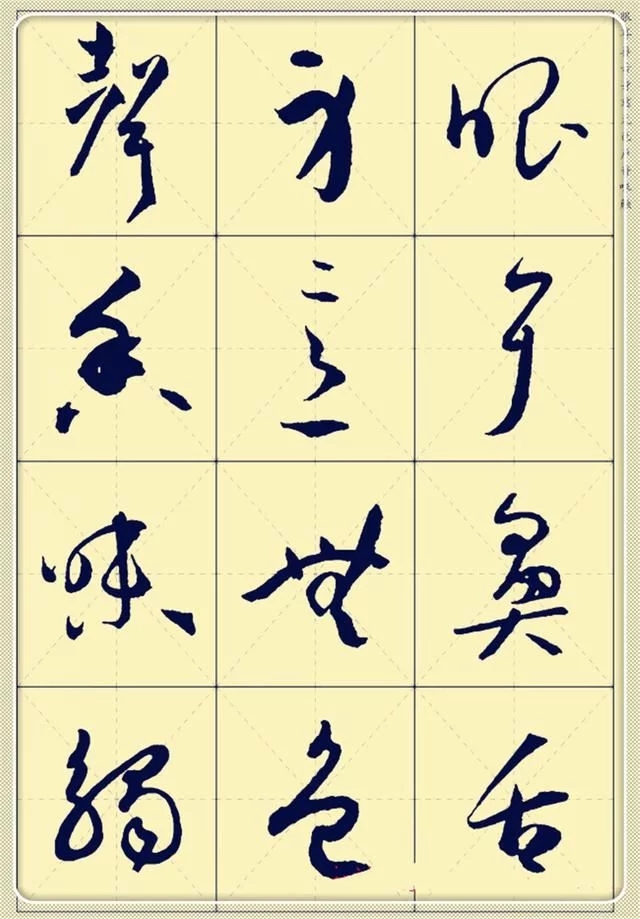 眼耳鼻舌
身意無色
聲香味觸